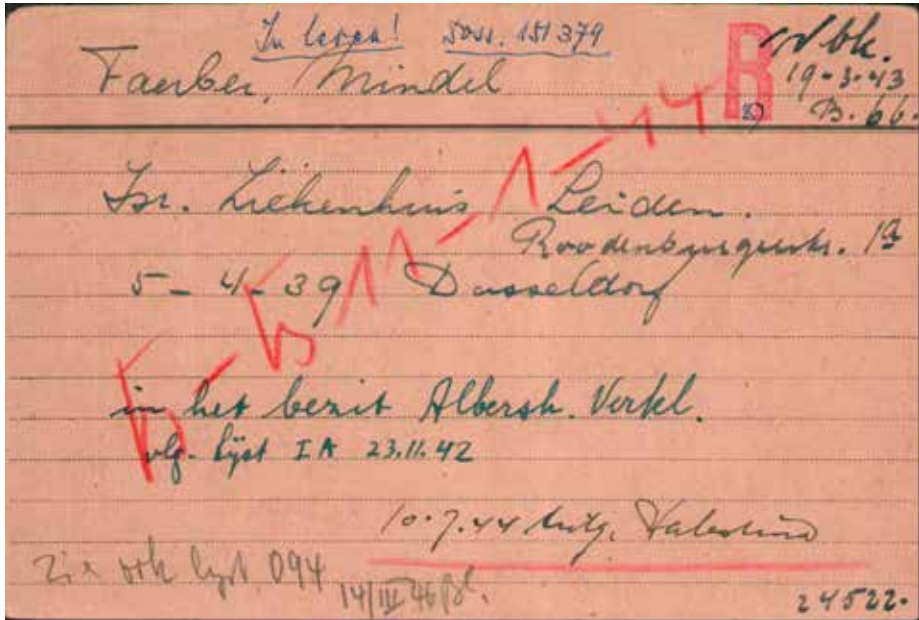 In leven! Doss. 151379
Faerber, Mindel
B
Wbk.
19-3-43
B. 66.
Isr. Ziekenhuis Leiden.
Roodenburgerstr. 1a
5-4-39 Dusseldorf
B-B 11-1-44
in het bezit Albersh. Verkl.
vlg. Lijst IA 23.11.42
10.7.44 Palestina
Zie lijst 094
14/III 46
24522.